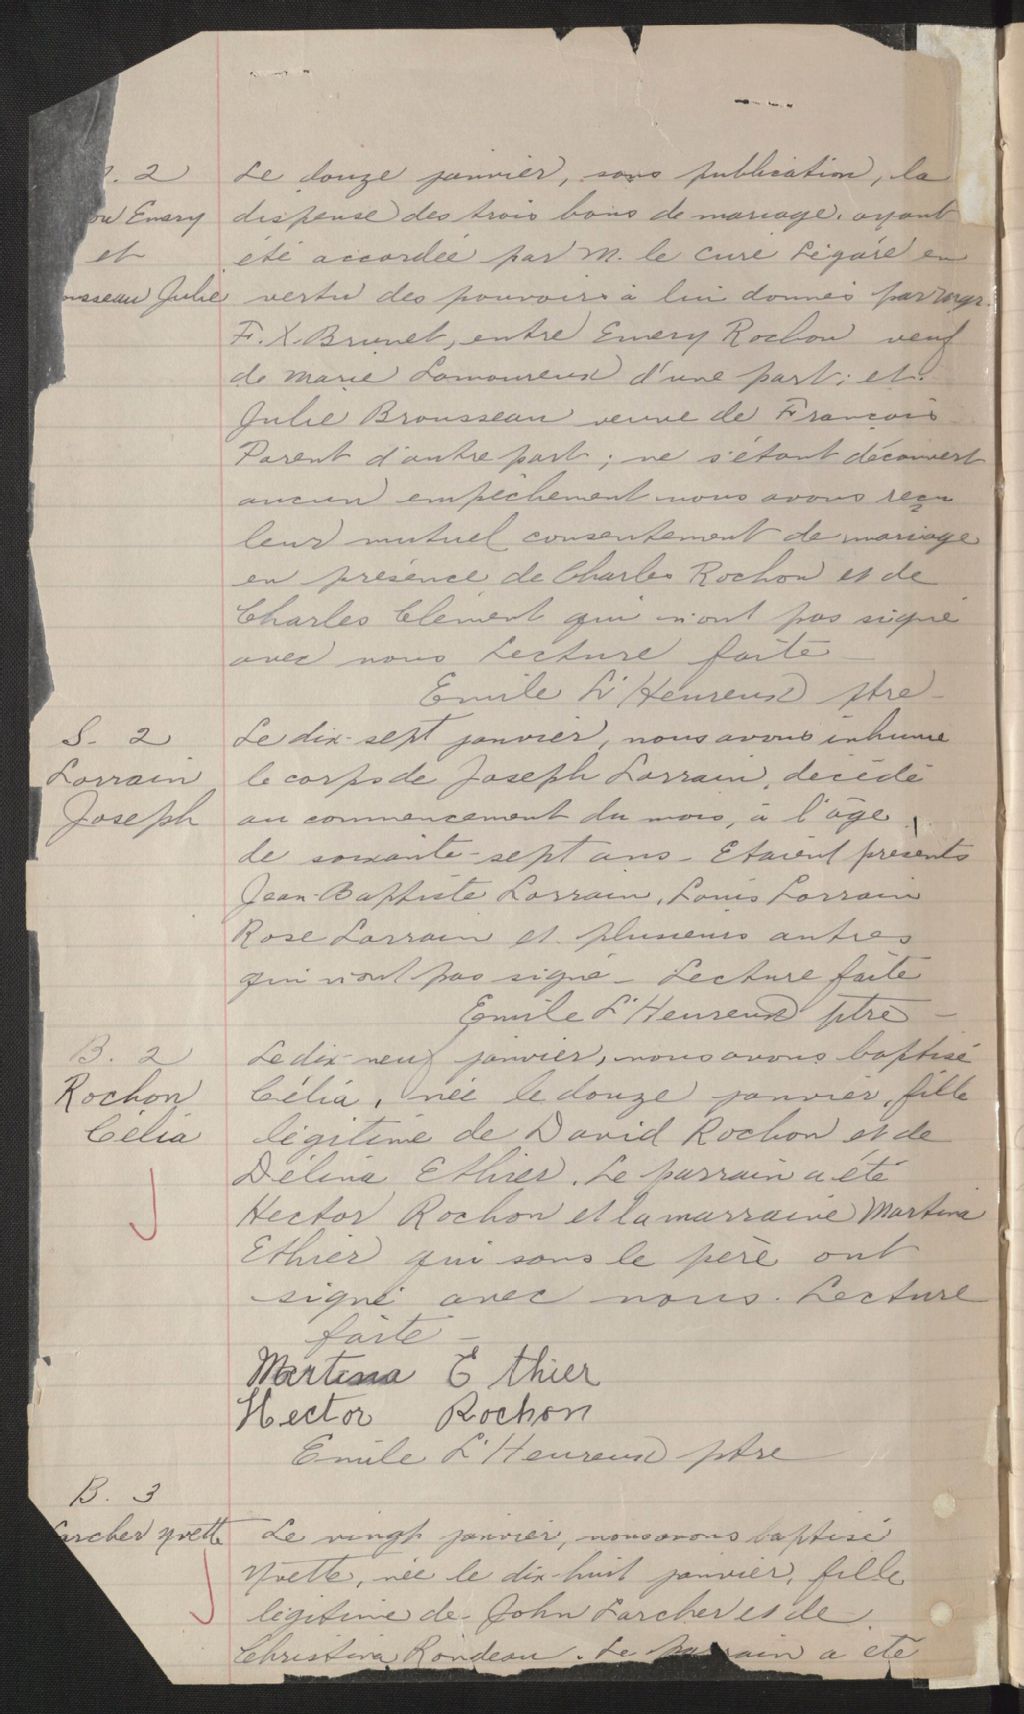 . 2
ou Emery
et
ousseau Julie
Le douze janvier, sans publication, la
dispense des trois bans de mariage ayant
été accordée par M. le curé Légaré en
vertu des pouvoirs à lui donnés par Mgr.
F. X. Brunet, entre Emery Rochon veuf
de Marie Lamoureux d'une part; et
Julie Brousseau veuve de François
Parent d'autre part; ne s'étant découvert
aucun empêchement nous avons reçu
leur mutuel consentement de mariage
en présence de Charles Rochon et de
Charles Clément qui n'ont pas signé
avec nous Lecture faite
Emile L'Heureux ptre
S. 2
Lorrain
Joseph
Le dix-sept janvier, nous avons inhumé
le corps de Joseph Lorrain, décédé
au commencement du mois, à l'âge
de soixante-sept ans - Etaient présents
Jean-Baptiste Lorrain, Louis Lorrain
Rose Lorrain et plusieurs autres
qui n'ont pas signé - Lecture faite
Emile L'Heureux ptre -
B. 2
Rochon
Célia
Le dix-neuf janvier, nous avons baptisé
Célia, née le douze janvier, fille
légitime de David Rochon et de
Délina Ethier. Le parrain a été
Hector Rochon et la marraine Martina
Ethier qui sans le père ont
signé avec nous. Lecture
faite -
Martina Ethier
Hector Rochon
Emile L'Heureux ptre
B. 3
Larcher Yvette
Le vingt janvier, nous avons baptisé
Yvette, née le dix-huit janvier, fille
légitime de John Larcher et de
Christina Rondeau. Le parrain a été